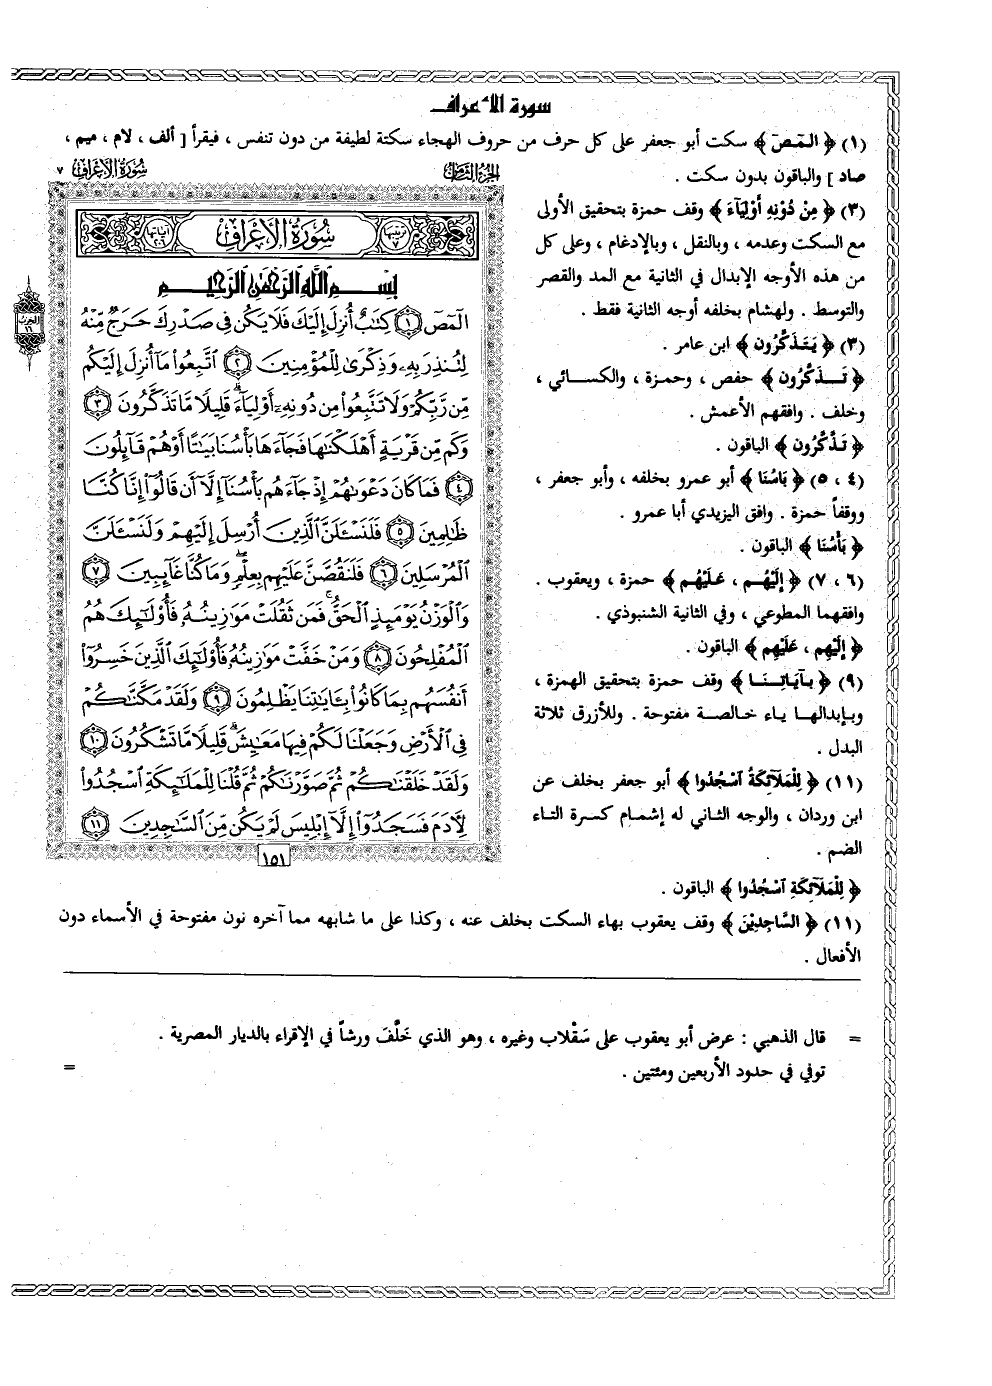 سورة الأعراف
(١) ﴿ الٓمٓصٓ ﴾ سكت أبو جعفر على كل حرف من حروف الهجاء سكتة لطيفة من دون تنفس ، فيقرأ [ ألف ، لام ، ميم ،
صاد ] والباقون بدون سكت .
(٣) ﴿ مِنْ دُوْنِهِ أَوْلِيَآءَ ﴾ وقف حمزة بتحقيق الأولى
مع السكت وعدمه ، وبالنقل ، وبالإدغام ، وعلى كل
من هذه الأوجه الإبدال في الثانية مع المد والقصر
والتوسط . ولهشام بخلفه أوجه الثانية فقط .
(٣) ﴿ يَتَذَكَّرُون ﴾ ابن عامر .
﴿ تَـذَكَّرُون ﴾ حفص ، وحمزة ، والكسائي ،
وخلف . وافقهم الأعمش .
﴿ تَذَّكَّرُون ﴾ الباقون .
(٤ ، ٥) ﴿ بَاسُنَا ﴾ أبو عمرو بخلفه ، وأبو جعفر ،
ووقفاً حمزة . وافق اليزيدي أبا عمرو .
﴿ بَأْسُنَا ﴾ الباقون .
(٦ ، ٧) ﴿ إِلَيْهُـم ، عَـلَيْهُم ﴾ حمزة ، ويعقوب .
وافقهما المطوعي ، وفي الثانية الشنبوذي .
﴿ إِلَيْهِم ، عَلَيْهِم ﴾ الباقون .
(٩) ﴿ بـآيَاتِـنَـا ﴾ وقف حمزة بتحقيق الهمزة ،
وبـإبدالهـا يـاء خـالصـة مفتوحة . وللأزرق ثلاثة
البدل .
(١١) ﴿ لِلْمَلآئِكَةُ ٱسْجُدُوا ﴾ أبو جعفر بخلف عن
ابن وردان ، والوجه الثاني له إشمام كسرة التاء
الضم .
﴿ لِلْمَلآئِكَةِ ٱسْجُدُوا ﴾ الباقون .
(١١) ﴿ السَّاجِدِيْنَ ﴾ وقف يعقوب بهاء السكت بخلف عنه ، وكذا على ما شابهه مما آخره نون مفتوحة في الأسماء دون
الأفعال .
سُورَةُ الأَعْرَافِ ٧
الجزء الثامن
سُورَةُ الأَعْرَافِ
بِسْمِ ٱللَّهِ ٱلرَّحْمَٰنِ ٱلرَّحِيمِ
الٓمٓصٓ ١ كِتَٰبٌ أُنزِلَ إِلَيْكَ فَلَا يَكُن فِى صَدْرِكَ حَرَجٌ مِّنْهُ
لِتُنذِرَ بِهِۦ وَذِكْرَىٰ لِلْمُؤْمِنِينَ ٢ ٱتَّبِعُوا۟ مَآ أُنزِلَ إِلَيْكُم
مِّن رَّبِّكُمْ وَلَا تَتَّبِعُوا۟ مِن دُونِهِۦٓ أَوْلِيَآءَ ۗ قَلِيلًا مَّا تَذَكَّرُونَ ٣
وَكَم مِّن قَرْيَةٍ أَهْلَكْنَٰهَا فَجَآءَهَا بَأْسُنَا بَيَٰتًا أَوْ هُمْ قَآئِلُونَ
٤ فَمَا كَانَ دَعْوَىٰهُمْ إِذْ جَآءَهُم بَأْسُنَآ إِلَّآ أَن قَالُوٓا۟ إِنَّا كُنَّا
ظَٰلِمِينَ ٥ فَلَنَسْـَٔلَنَّ ٱلَّذِينَ أُرْسِلَ إِلَيْهِمْ وَلَنَسْـَٔلَنَّ
ٱلْمُرْسَلِينَ ٦ فَلَنَقُصَّنَّ عَلَيْهِم بِعِلْمٍ ۖ وَمَا كُنَّا غَآئِبِينَ ٧
وَٱلْوَزْنُ يَوْمَئِذٍ ٱلْحَقُّ ۚ فَمَن ثَقُلَتْ مَوَٰزِينُهُۥ فَأُو۟لَٰٓئِكَ هُمُ
ٱلْمُفْلِحُونَ ٨ وَمَنْ خَفَّتْ مَوَٰزِينُهُۥ فَأُو۟لَٰٓئِكَ ٱلَّذِينَ خَسِرُوٓا۟
أَنفُسَهُم بِمَا كَانُوا۟ بِـَٔايَٰتِنَا يَظْلِمُونَ ٩ وَلَقَدْ مَكَّنَّٰكُمْ
فِى ٱلْأَرْضِ وَجَعَلْنَا لَكُمْ فِيهَا مَعَٰيِشَ ۗ قَلِيلًا مَّا تَشْكُرُونَ ١٠
وَلَقَدْ خَلَقْنَٰكُمْ ثُمَّ صَوَّرْنَٰكُمْ ثُمَّ قُلْنَا لِلْمَلَٰٓئِكَةِ ٱسْجُدُوا۟
لِـَٔادَمَ فَسَجَدُوٓا۟ إِلَّآ إِبْلِيسَ لَمْ يَكُن مِّنَ ٱلسَّٰجِدِينَ ١١
١٥١
الحزب
١٦
= قال الذهبي : عرض أبو يعقوب على سَقْلاب وغيره ، وهو الذي خَلَّفَ ورشاً في الإقراء بالديار المصرية .
توفي في حدود الأربعين ومئتين . =